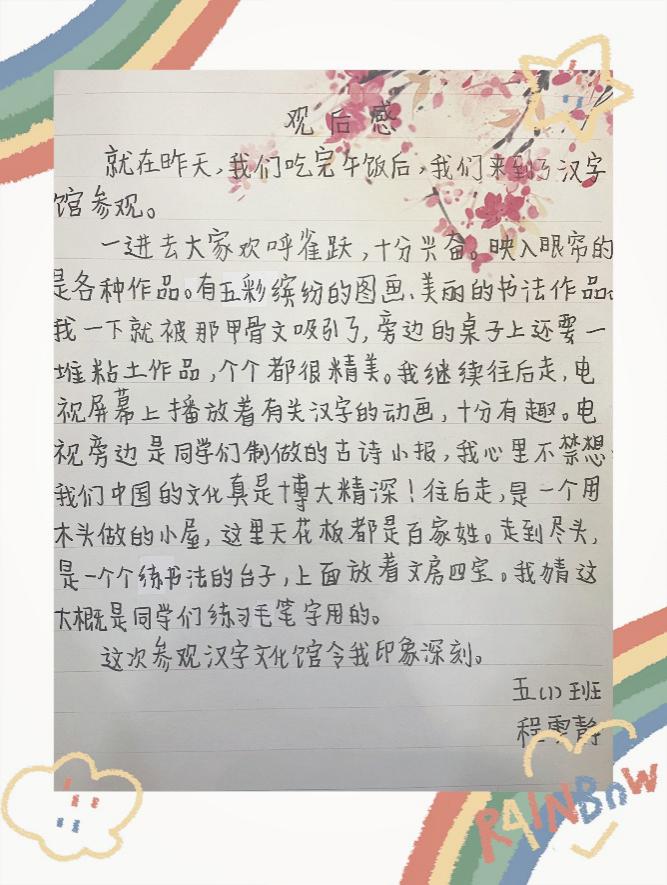 观后感
就在昨天,我们吃完午饭后,我们来到了汉字
馆参观。
一进去大家欢呼雀跃,十分兴奋。映入眼帘的
是各种作品。有五彩缤纷的图画、美丽的书法作品。
我一下就被那甲骨文吸引了,旁边的桌子上还要一
堆粘土作品,个个都很精美。我继续往后走,电
视屏幕上播放着有关汉字的动画,十分有趣。电
视旁边是同学们制做的古诗小报,我心里不禁想
我们中国的文化真是博大精深!往后走,是一个用
木头做的小屋,这里天花板都是百家姓。走到尽头,
是一个个练书法的台子,上面放着文房四宝。我猜这
大概是同学们练习毛笔字用的。
这次参观汉字文化馆令我印象深刻。
五(1)班
程雯静
RAINBOW